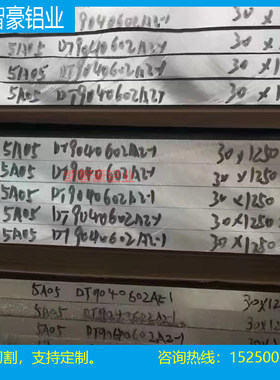 智豪铝业
9040602A2-1 30×1250
5A05 DT9040602A2-1 30×
5A05 DT9040602A2-1 30×1250
5A05 DT9040602A2-1 30×1250
5A05 DT9040602A2-1 30×1250
5A05 DT9040602A2-1 30×1250
5A05 DT9040602A2-1 30×1250
5A05 DT9040602A2-1 30×1250
DT9040602A2-1 30×1250
DT9040602A2-1 30×1250
切割，支持定制。 咨询热线：152500